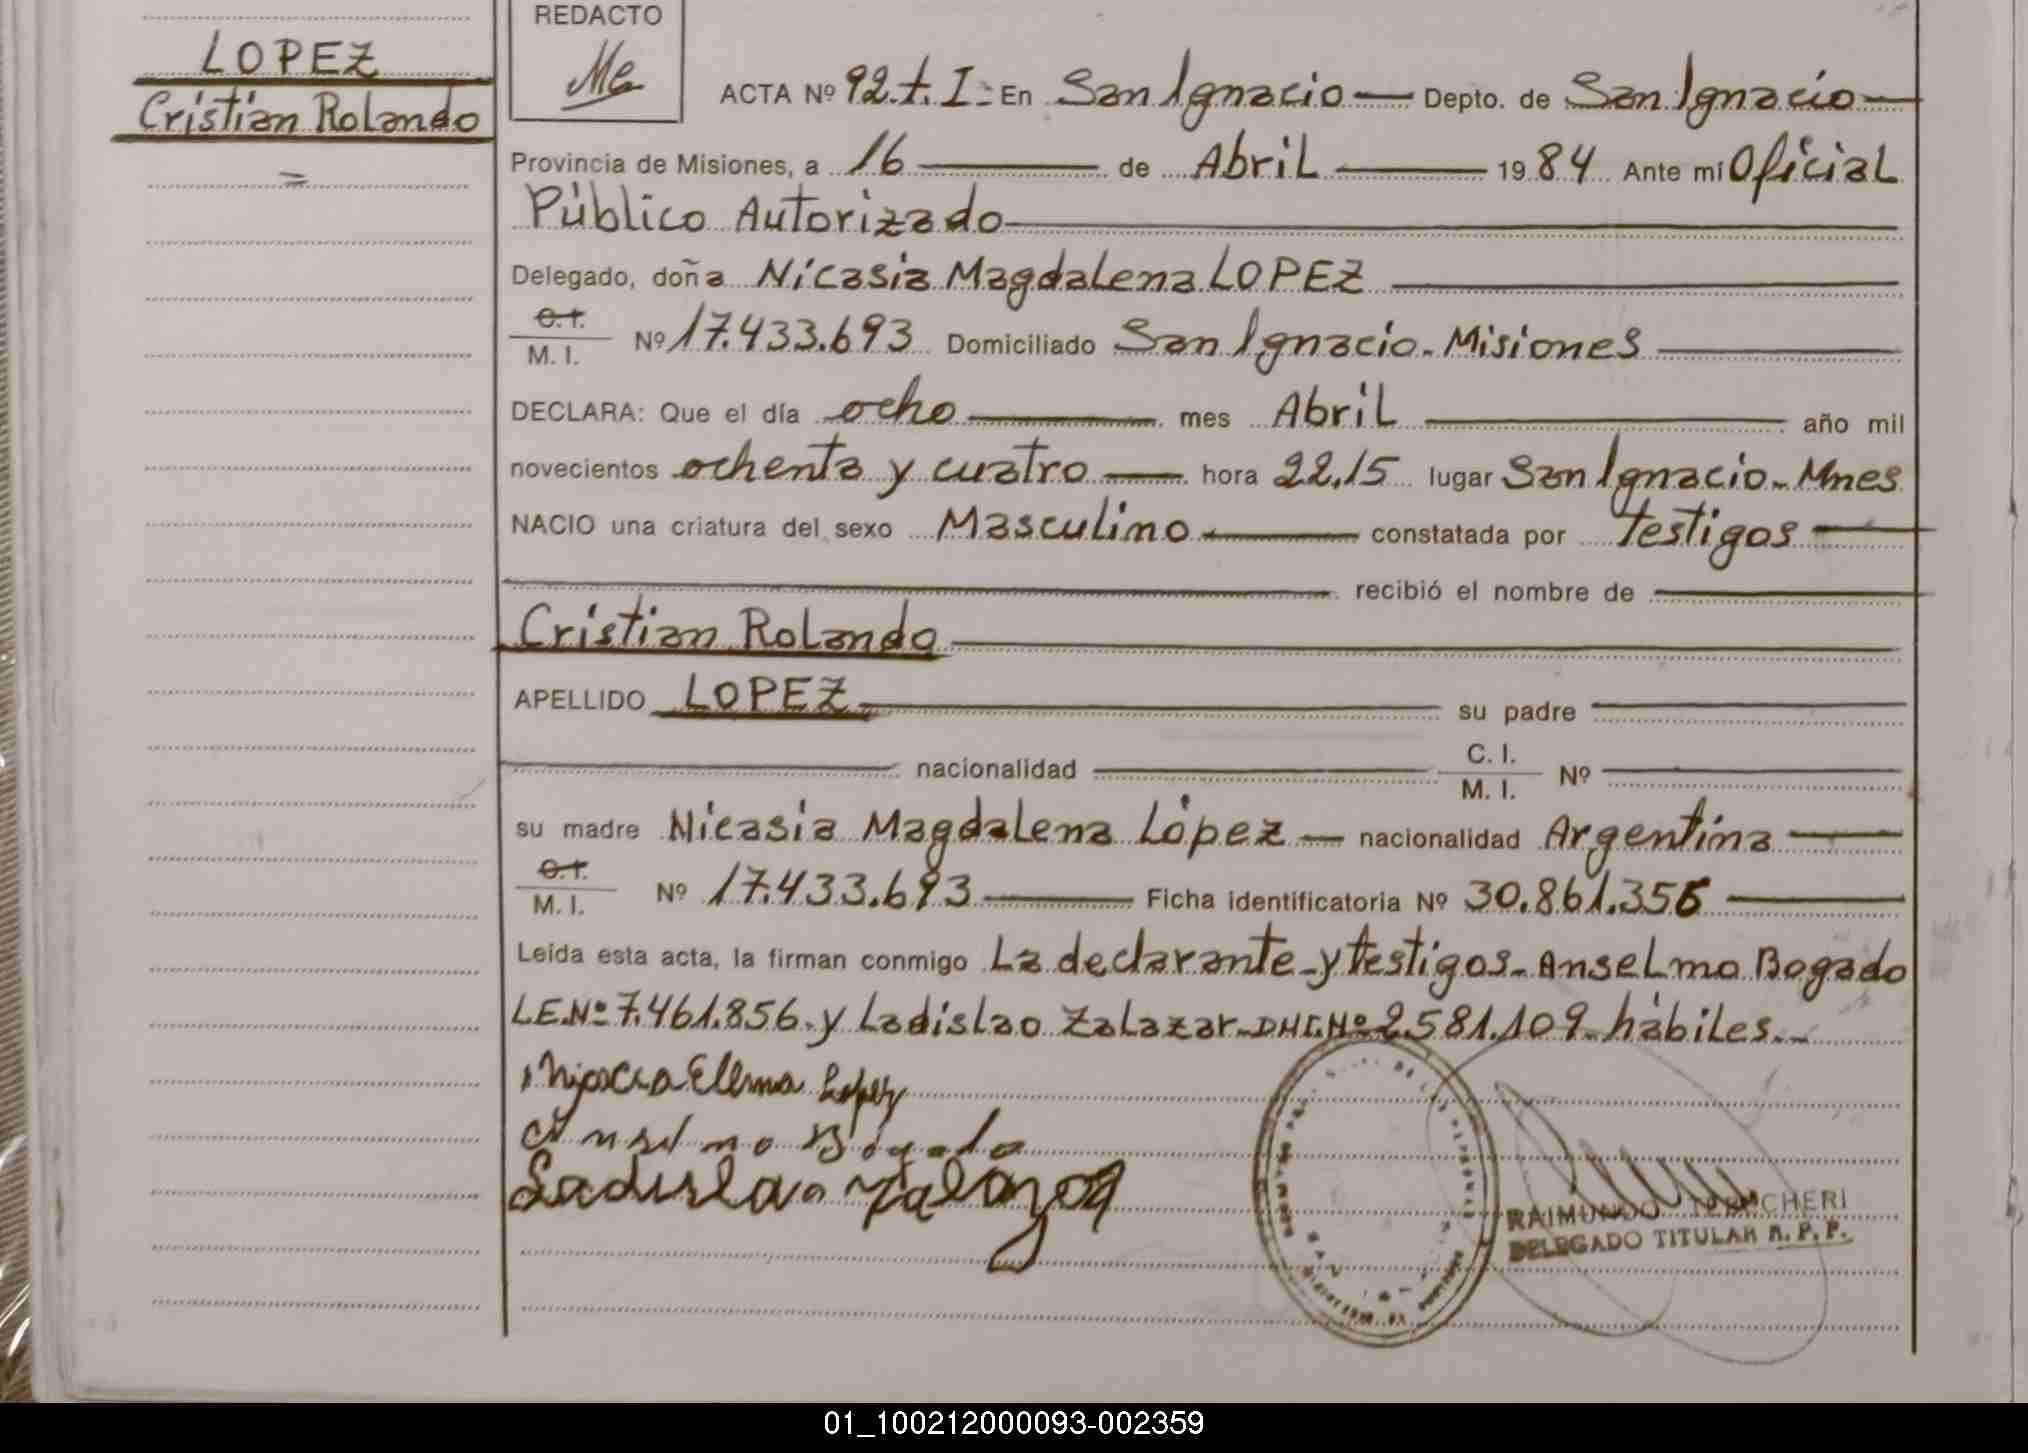 LOPEZ
Cristian Rolando
=
REDACTO
ACTA Nº 92.t.I.- En San Ignacio — Depto. de San Ignacio —
Provincia de Misiones, a 16 — de Abril — 1984 Ante mí Oficial
Público Autorizado —
Delegado, doña Nicasia Magdalena LOPEZ —
C.I.
M. I. Nº 17.433.693 Domiciliado San Ignacio. Misiones —
DECLARA: Que el día ocho — mes Abril — año mil
novecientos ochenta y cuatro — hora 22.15 lugar San Ignacio - Mnes
NACIO una criatura del sexo Masculino — constatada por testigos —
— recibió el nombre de —
Cristian Rolando —
APELLIDO LOPEZ — su padre —
— nacionalidad — C. I.
M. I. Nº —
su madre Nicasia Magdalena López — nacionalidad Argentina —
C.I.
M. I. Nº 17.433.693 — Ficha identificatoria Nº 30.861.356 —
Leída esta acta, la firman conmigo La declarante - y testigos - Anselmo Bogado
L.E.Nº 7.461.856. y Ladislao Zalazar - DNI.Nº 2.581.109 - hábiles.-
Lopez
Anselmo Bogado
Ladislao Zalazar
RAIMUNDO
DELEGADO TITULAR R. P. P.
01_100212000093-002359